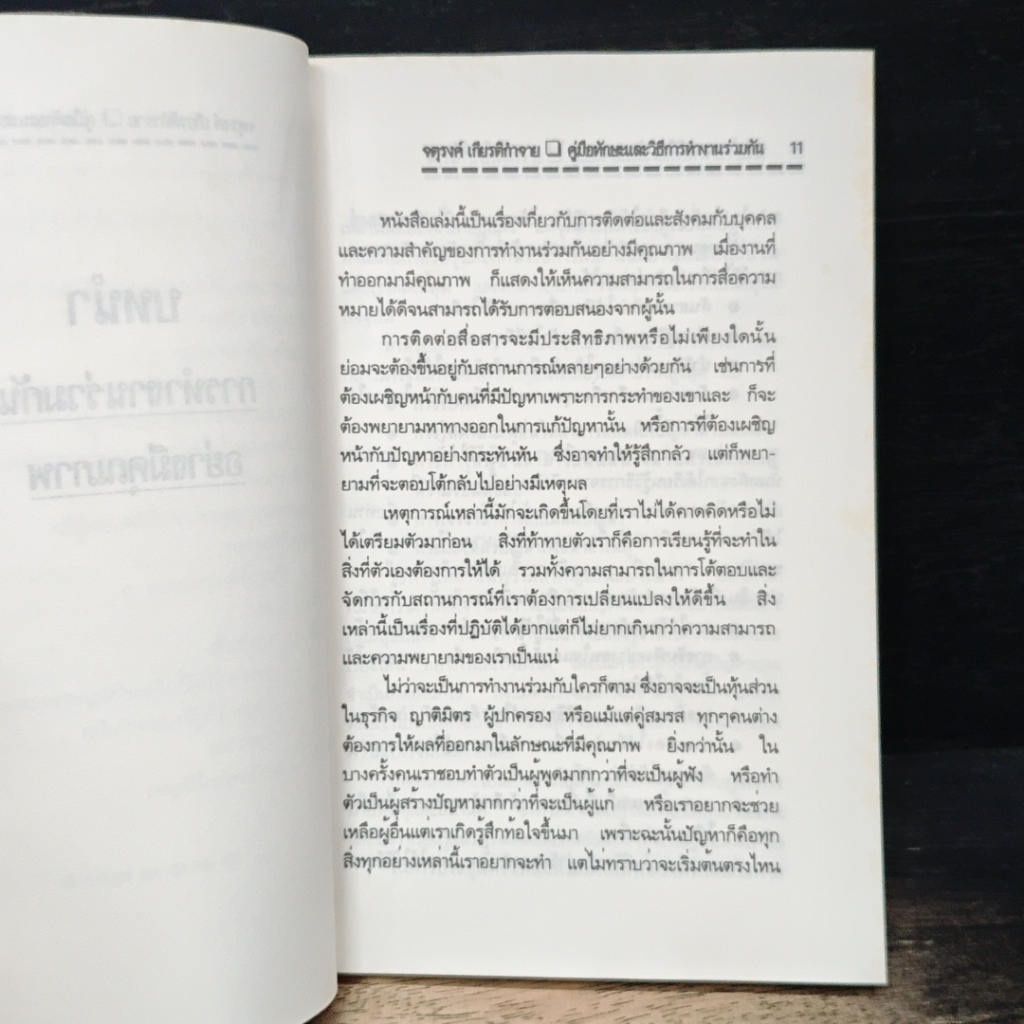 จตุรงค์ เกียรติกำจาย ❏ คู่มือทักษะและวิธีการทำงานร่วมกัน 11
หนังสือเล่มนี้เป็นเรื่องเกี่ยวกับการติดต่อและสังคมกับบุคคล
และความสำคัญของการทำงานร่วมกันอย่างมีคุณภาพ เมื่องานที่
ทำออกมามีคุณภาพ ก็แสดงให้เห็นความสามารถในการสื่อความ
หมายได้ดีจนสามารถได้รับการตอบสนองจากผู้นั้น
การติดต่อสื่อสารจะมีประสิทธิภาพหรือไม่เพียงใดนั้น
ย่อมจะต้องขึ้นอยู่กับสถานการณ์หลายๆอย่างด้วยกัน เช่นการที่
ต้องเผชิญหน้ากับคนที่มีปัญหาเพราะการกระทำของเขาและ ก็จะ
ต้องพยายามหาทางออกในการแก้ปัญหานั้น หรือการที่ต้องเผชิญ
หน้ากับปัญหาอย่างกระทันหัน ซึ่งอาจทำให้รู้สึกกลัว แต่ก็พยา-
ยามที่จะตอบโต้กลับไปอย่างมีเหตุผล
เหตุการณ์เหล่านี้มักจะเกิดขึ้นโดยที่เราไม่ได้คาดคิดหรือไม่
ได้เตรียมตัวมาก่อน สิ่งที่ท้าทายตัวเราก็คือการเรียนรู้ที่จะทำใน
สิ่งที่ตัวเองต้องการให้ได้ รวมทั้งความสามารถในการโต้ตอบและ
จัดการกับสถานการณ์ที่เราต้องการเปลี่ยนแปลงให้ดีขึ้น สิ่ง
เหล่านี้เป็นเรื่องที่ปฏิบัติได้ยากแต่ก็ไม่ยากเกินกว่าความสามารถ
และความพยายามของเราเป็นแน่
ไม่ว่าจะเป็นการทำงานร่วมกับใครก็ตาม ซึ่งอาจจะเป็นหุ้นส่วน
ในธุรกิจ ญาติมิตร ผู้ปกครอง หรือแม้แต่คู่สมรส ทุกๆคนต่าง
ต้องการให้ผลที่ออกมาในลักษณะที่มีคุณภาพ ยิ่งกว่านั้น ใน
บางครั้งคนเราชอบทำตัวเป็นผู้พูดมากกว่าที่จะเป็นผู้ฟัง หรือทำ
ตัวเป็นผู้สร้างปัญหามากกว่าที่จะเป็นผู้แก้ หรือเราอยากจะช่วย
เหลือผู้อื่นแต่เราเกิดรู้สึกท้อใจขึ้นมา เพราะฉะนั้นปัญหาก็คือทุก
สิ่งทุกอย่างเหล่านี้เราอยากจะทำ แต่ไม่ทราบว่าจะเริ่มต้นตรงไหน